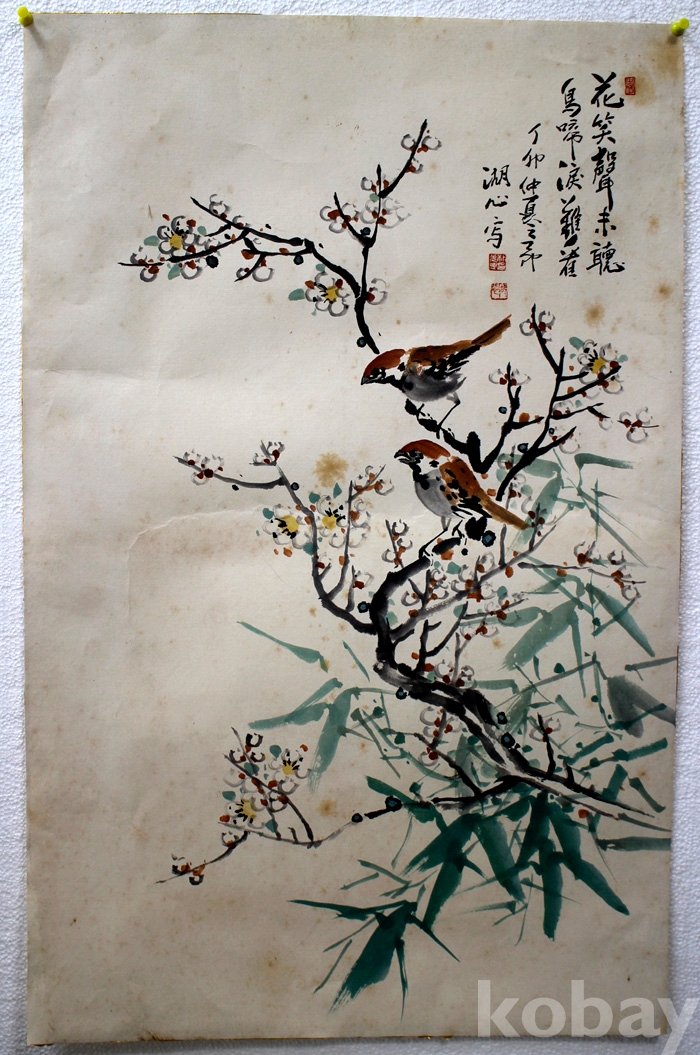 花笑聲未聽
鳥啼淚難看
丁卯仲夏之節
湖心寫
kobay